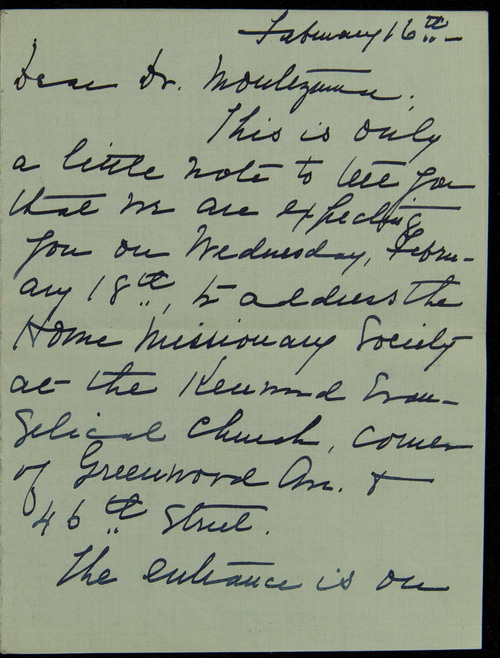 February 16th
Dear Dr. Montezuma,
This is only
a little note to tell you
that we are expecting
you on Wednesday, Febru-
ary 18th, to address the
Home Missionary Society
at the Kenwood Evan-
gelical Church, corner
of Greenwood Av. &
46th Street.
The entrance is on